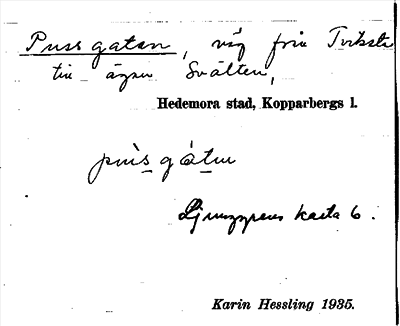 Pussgatan, väg från Tvksta
till ägan Svälten,
Hedemora stad, Kopparbergs l.
pùsgátn
Ljunggrens karta 6.
Karin Hessling 1935.